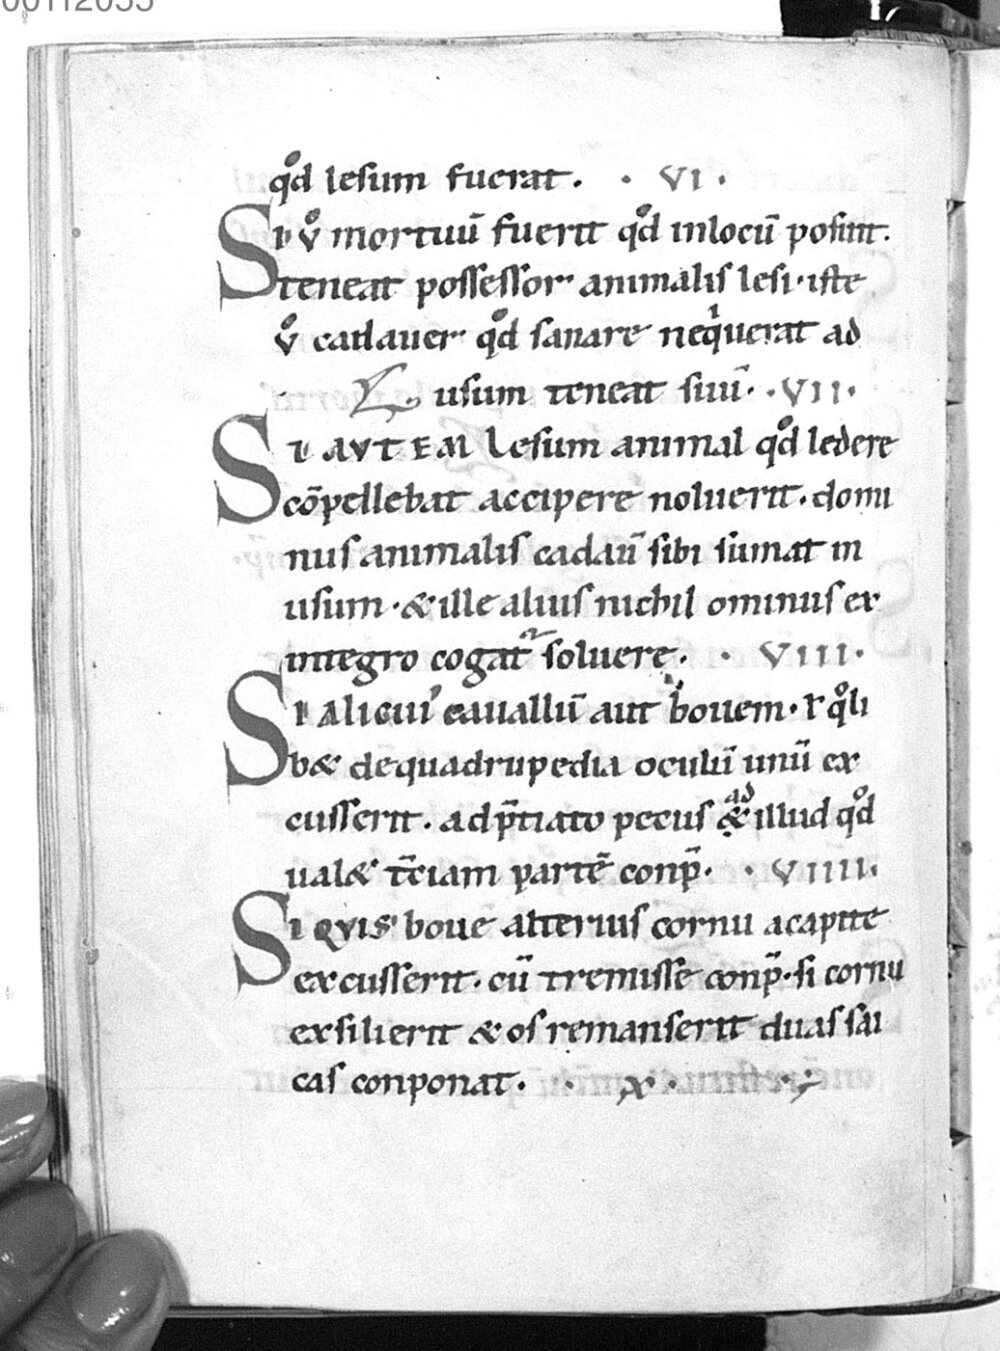 00112055
qͦd lesum fuerat. · VI ·
SI vͦ mortuū fuerit qͦd inlocū posint.
teneat possessor animalis lesi · iste
vͦ cadauer qͦd sanare neqͥuerat ad
usum teneat suū · · VII ·
SI AVTEM Lesum animal qͦd ledere
cōpellebat accipere noluerit · domi
nus animalis cadaū sibi sumat in
usum · & ille alius nichil ominus ex
integro cogat᷑ soluere · · VIII ·
SI ALICVI' cauallū aut bouem · ł qͦli
b& de quadrupedia oculū unū ex
cusserit · adp̄tiato pecus ad & illud qͦd
ual& t̄ciam partē conp̄ · · VIIII ·
SI QVIS boue alterius cornu acapite
excusserit · cū tremisse conp̄ · si cornu
exsilierit & os remanserit duas sai
cas conponat · · X ·